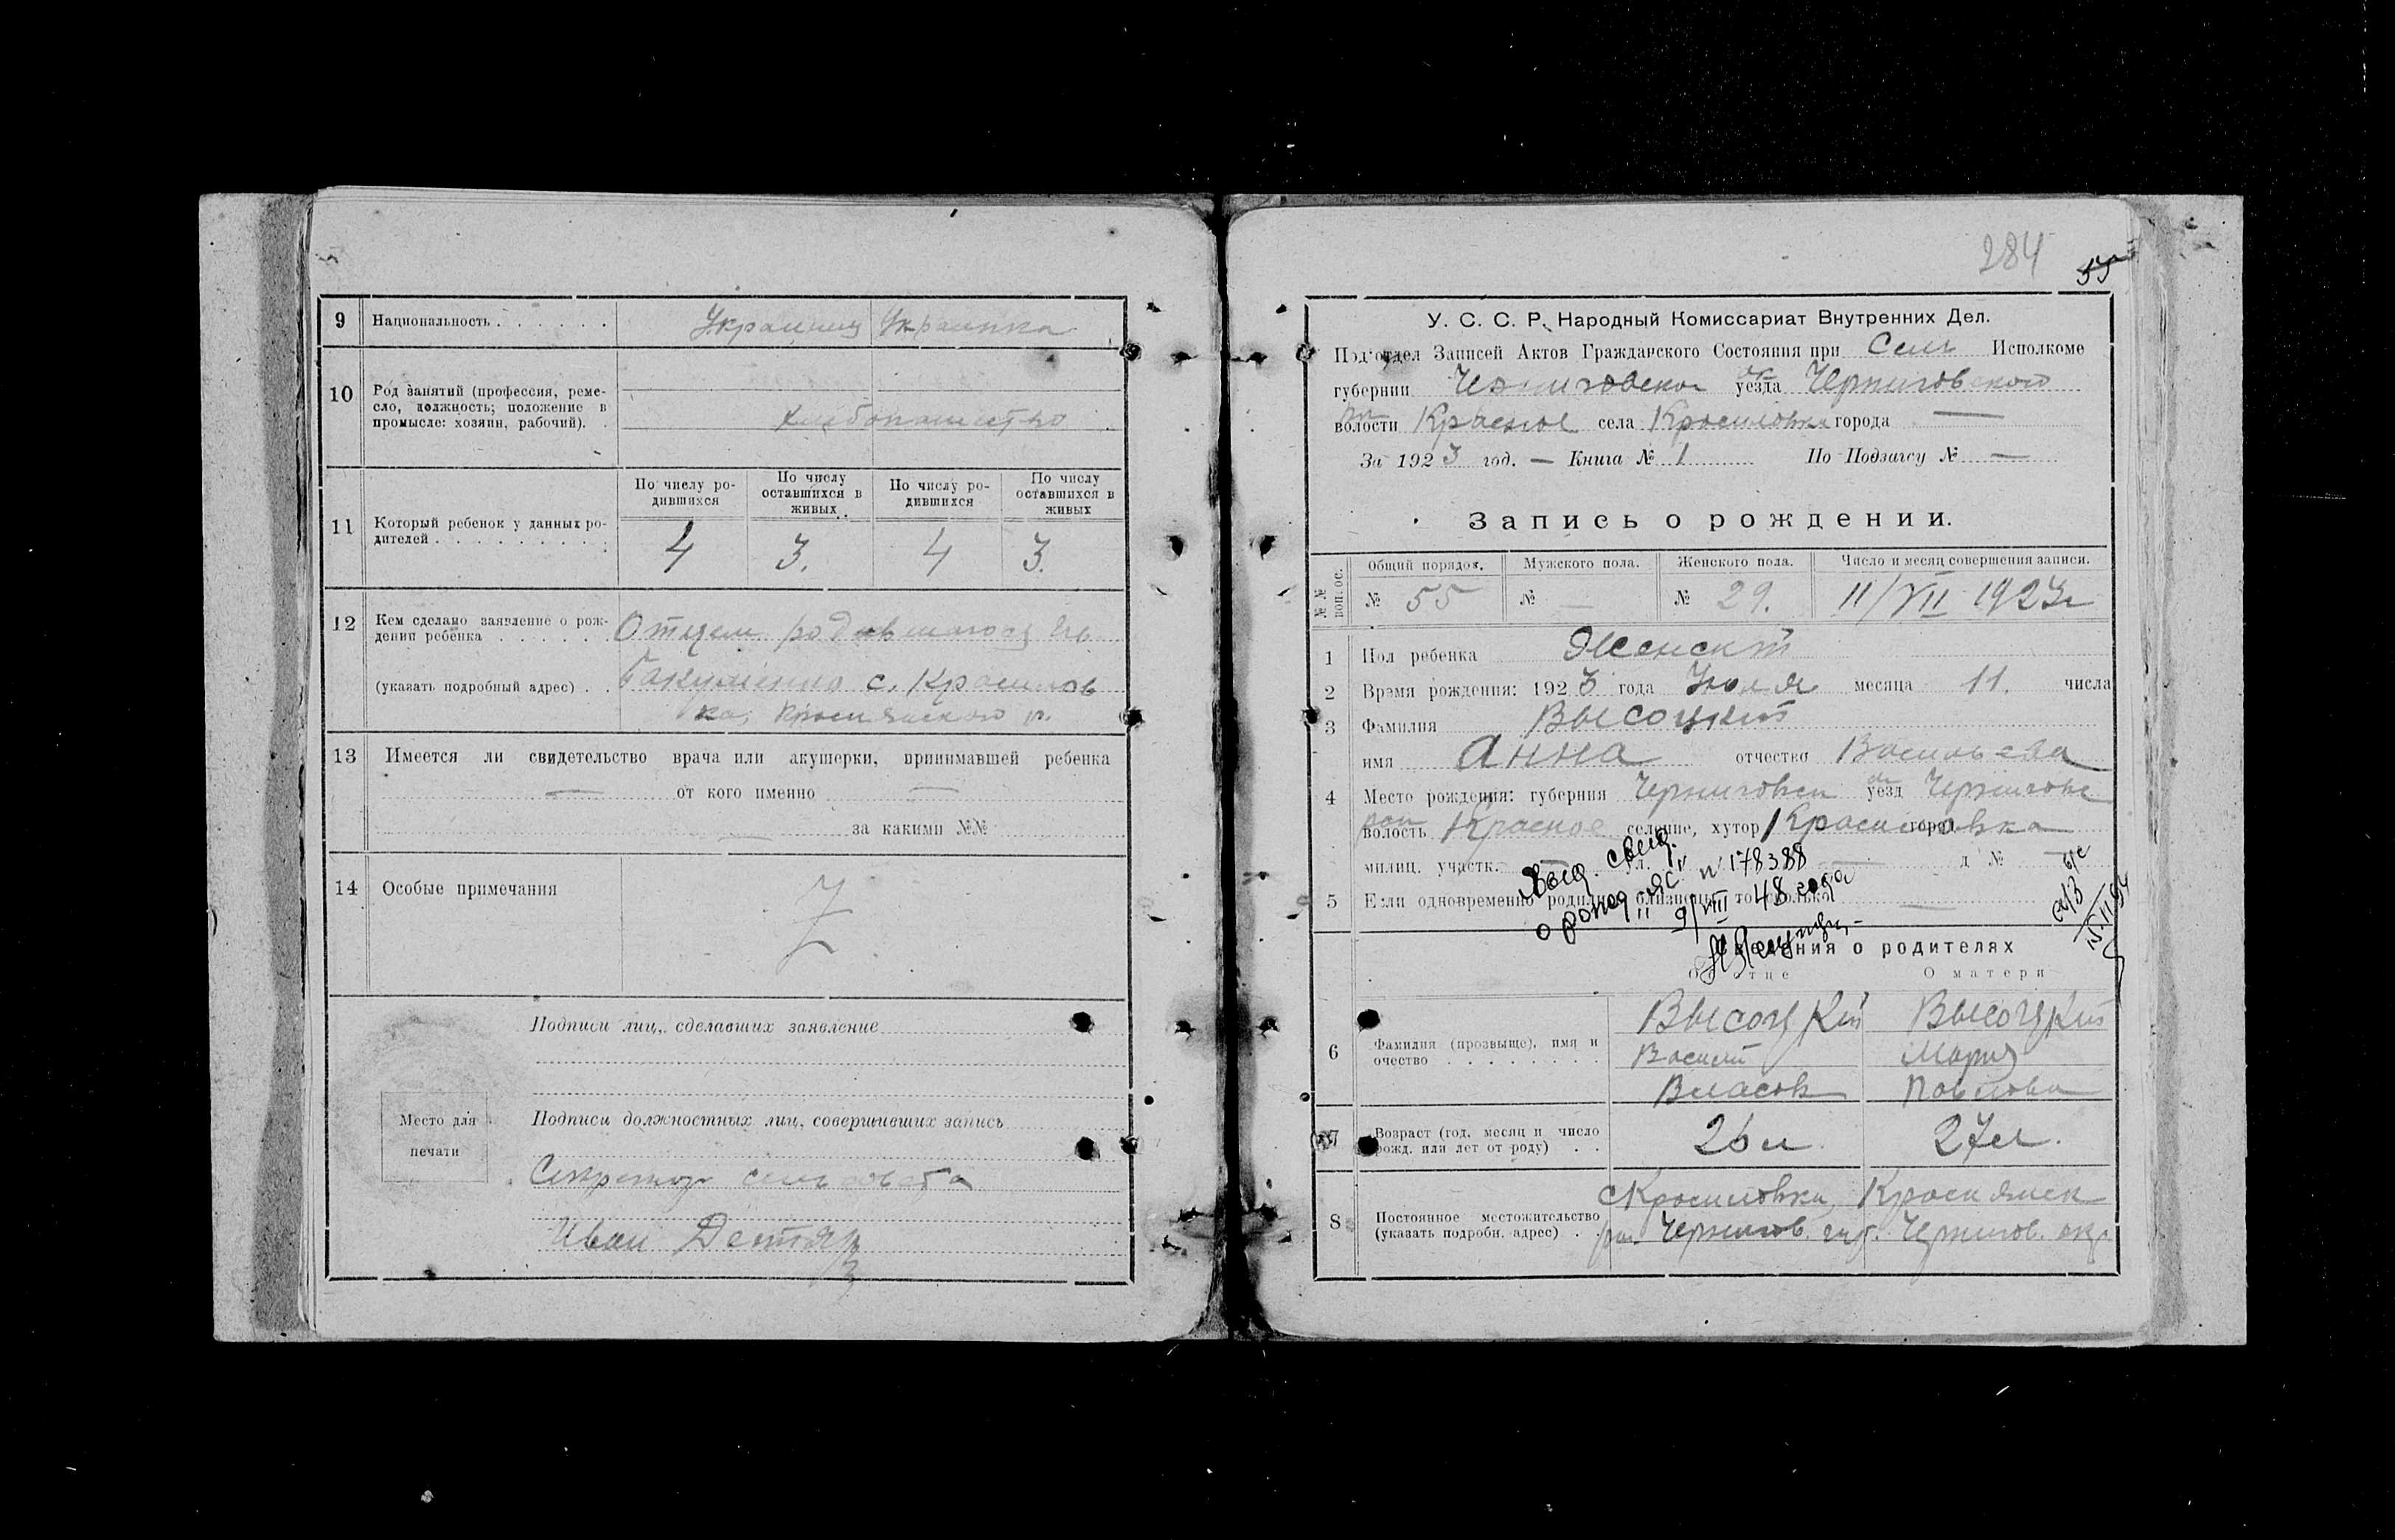 9 Национальность . . . . . . Украинец Украинка
10 Род занятий (профессия, реме-
сло, должность; положение в
промысле: хозяин, рабочий). . хлебопашество
11 Который ребенок у данных ро-
дителей . . . . . . . . .
По числу ро-
дившихся
По числу
оставшихся в
живых.
По числу ро-
дившихся
По числу
оставшихся в
живых
4 3. 4 3.
12 Кем сделано заявление о рож-
дении ребенка . . . . . . Отцем родившагося
(указать подробный адрес) . . с. Красилов
ка,
13 Имеется ли свидетельство врача или акушерки, принимавшей ребенка
— от кого именно —
— за какими №№
14 Особые примечания Z
Подписи лиц, сделавших заявление
Место для
печати
Подписи должностных лиц, совершивших запись
Секретар сельсовета
Иван
284 55
У. С. С. Р. Народный Комиссариат Внутренних Дел.
Подотдел Записей Актов Гражданского Состояния при Сель Исполкоме
губернии Черниговской уезда ок Черниговского
волости Красное села Красиловки города —
За 1923 год. — Книга № 1 По Подзагсу № —
Запись о рождении.
№№ вопрос. Общий порядок. Мужского пола. Женского пола. Число и месяц совершения записи.
№ 55 № — № 29. 11/VII 1923г
1 Пол ребенка Женский
2 Время рождения: 1923 года Июля месяца 11. числа
3 Фамилия Высоцкий
имя Анна отчество Васильева
4 Место рождения: губерния Черниговск уезд ок Чернигове
волость рай Красное селение, хутор Красиловка город
милиц. участк. — ул. д № —
5 Если одновременно родились близнецы, то сколько —
Выд. свид.
о рожд № 178388
9/VIII 48 года
Сведения о родителях
О отце О матери
6 Фамилия (прозвище), имя и
очество . . . . . . . .
Высоцкий Высоцкий
Василий Мария
Власов Павлова
7 Возраст (год, месяц и число
рожд. или лет от роду) . . 26 л 27 л.
8 Постоянное местожительство
(указать подробн. адрес) . .
с Красиловка, Краснянск
рай Чернигов. губ. Чернигов. окр.